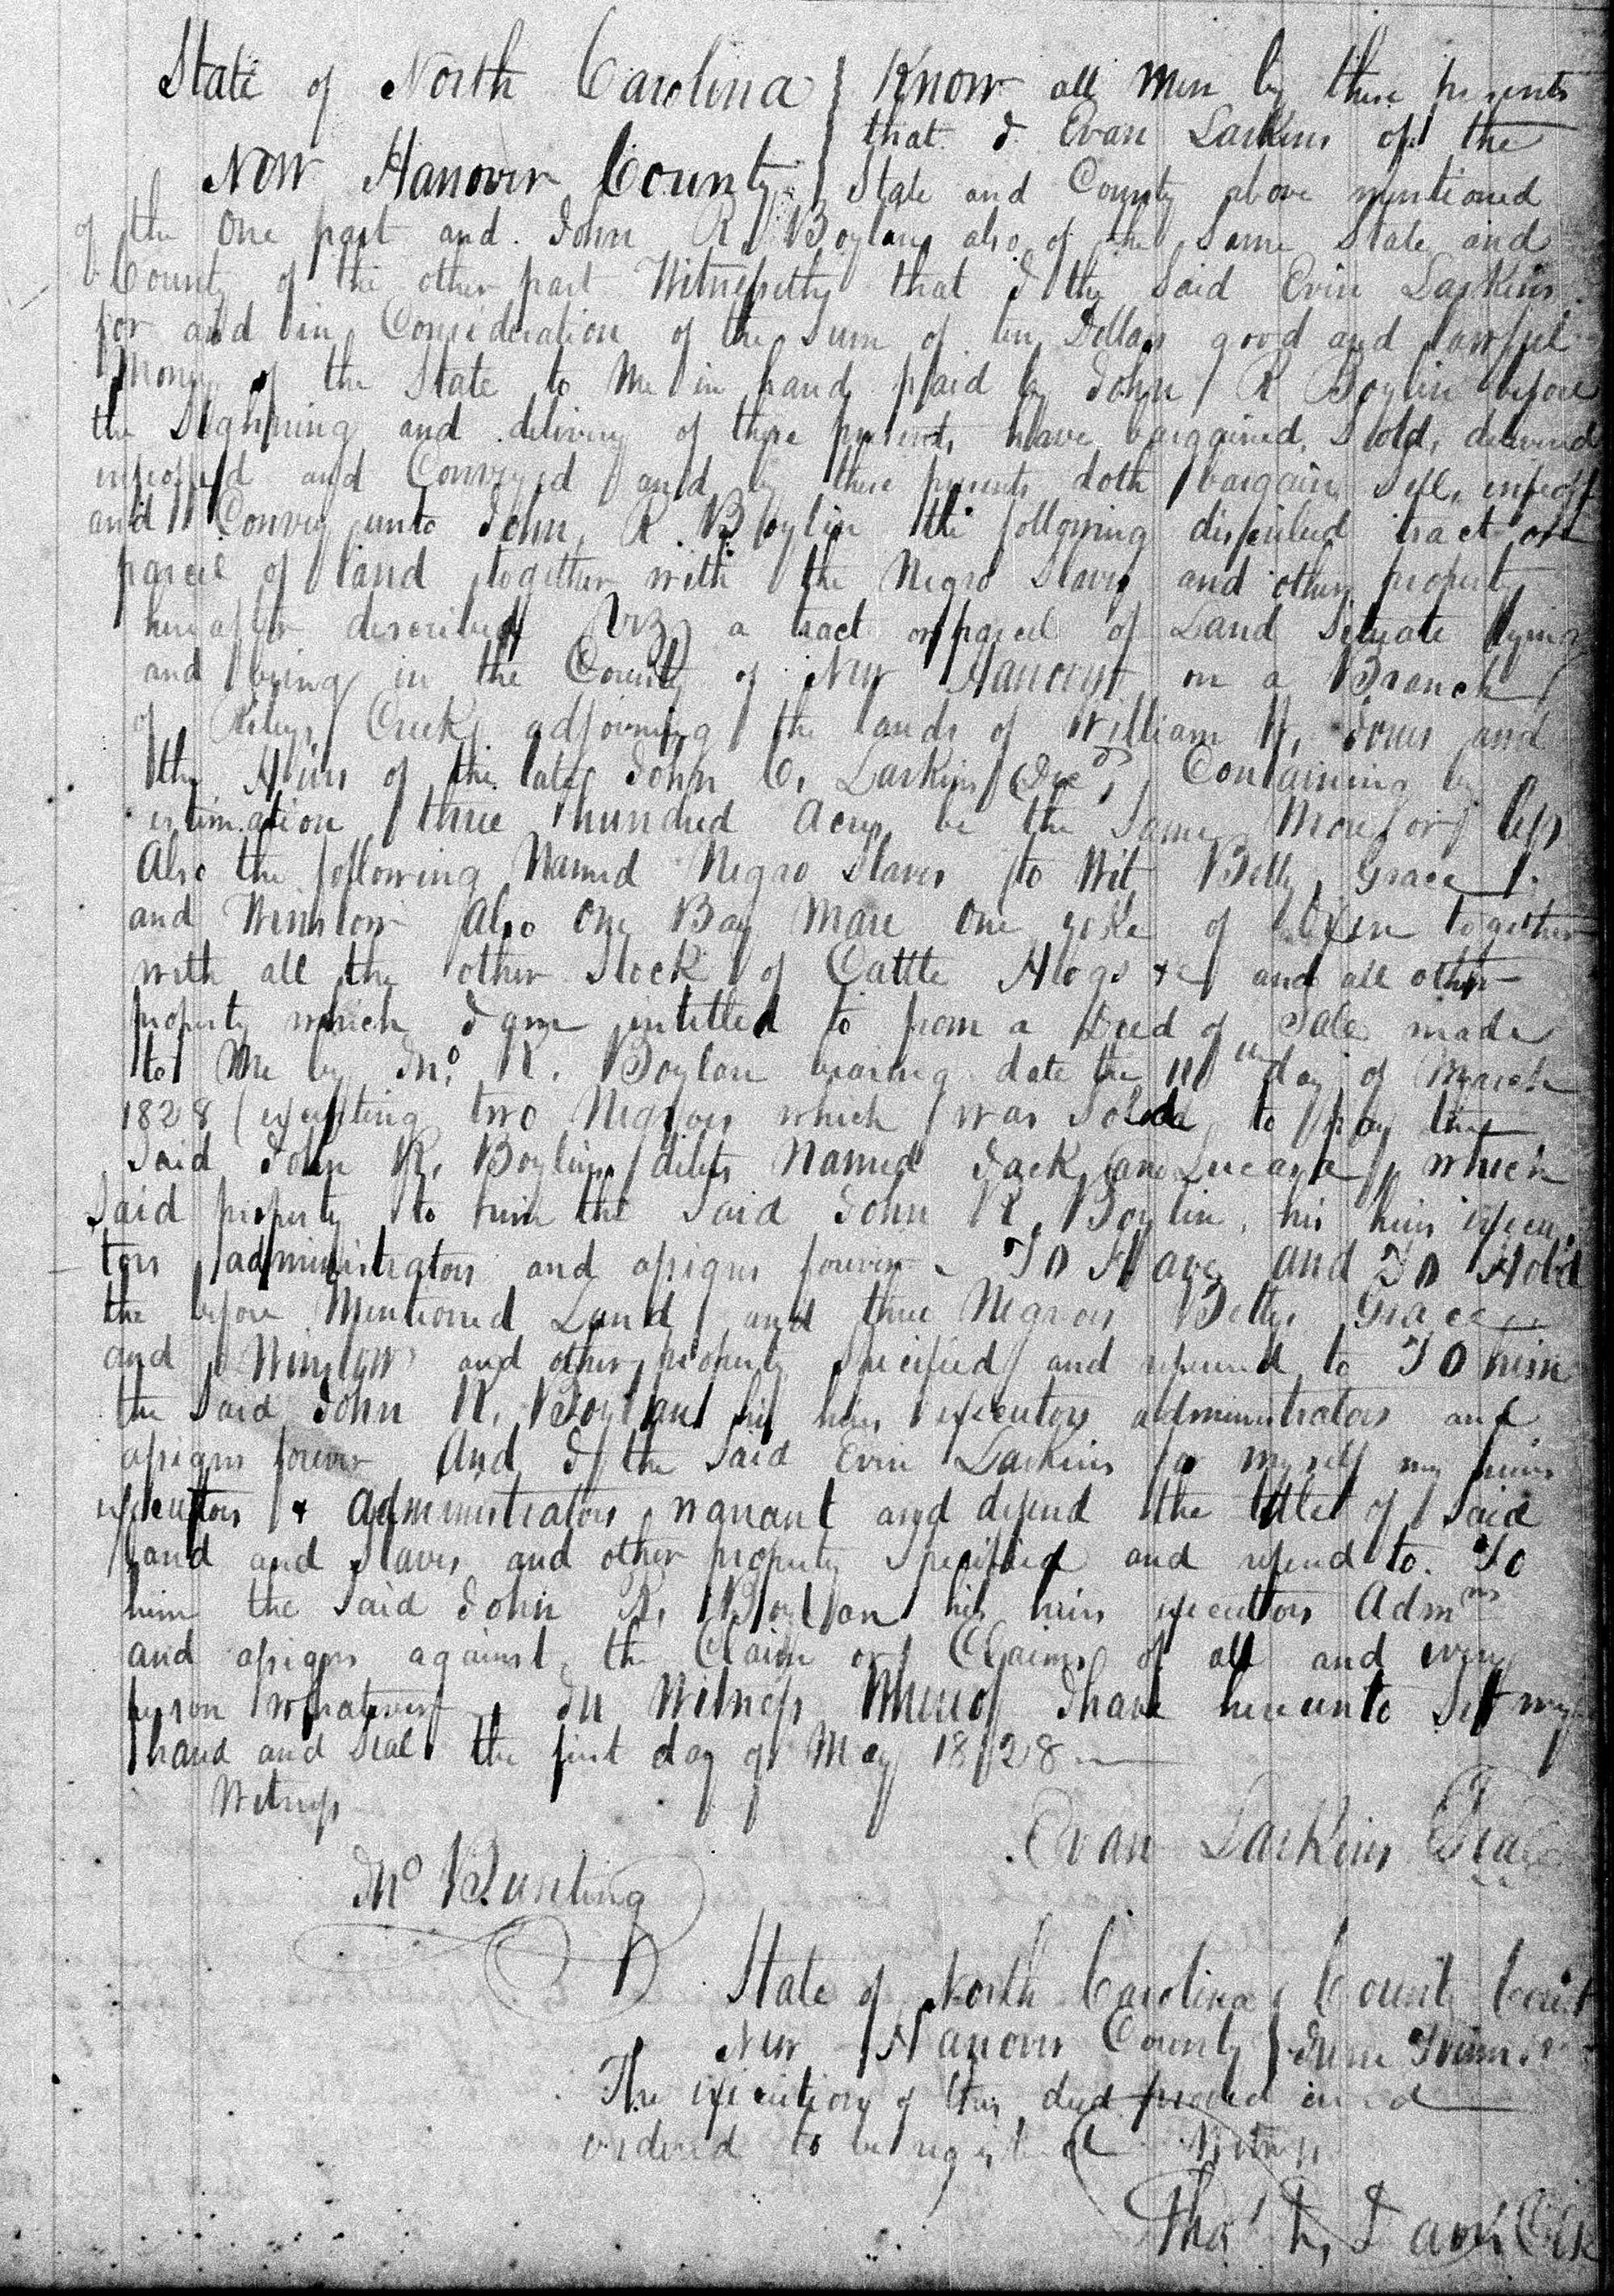 State of North Carolina } Know all men by these presents
that I Evan Larkins of the
New Hanover County } State and County above mentioned
of the One part and John R. Boylan also of the Same State and
County of the other part Witnesseth that I the Said Evin Larkins
for and in Consideration of the Sum of ten Dollars good and lawful
Money of the State to Me in hand paid by John R Boylin before
the Sighning and delivery of these presents have bargained, Sold, delivered
enfeoffed and Conveyed and by these presents doth bargain, Sell, enfeoff
and Convey unto John R. Boylin the following discribed tract or
parcel of land together with the Negro Slaves and other property
hereafter described Viz, a tract or parcel of Land Situate lying
and being in the County of New Hanover on a Branch
of Rileys Creek adjoining the lands of William W. Jones and
the Heirs of the late John C. Larkins Decd, Containing by
estimation three hundred Acres be the Same More or less
Also the following Named Negro Slaves to Wit Betty, Grace
and Winslow Also One Bay Mare One yoke of Oxen together
with all the other Stock of Cattle Hogs &c and all other
property which I am intitled to from a Deed of Sale made
to Me by Jno. R. Boylan bearing date the 11th day of March
1828 (excepting two Negroes which was Solde to pay the
Said John R. Boylins debts Named Jack and which
Said property to him the Said John R. Boylin, his heirs execu
tors administrators and assigns forever To Have and To Hold
the before Mentioned Land and three Negroes Betty Grace
and Winslow and other property Specified and refered to To him
the Said John R. Boylan his heirs executors administrators and
assigns forever And I the Said Evin Larkins for myself my heirs
executors & administrators warrant and defend the title of Said
Land and Slaves and other property Specified and refered to. To
him the Said John R. Boylan his heirs executors Admrs
and assigns against the Claim or Claims of all and every
person whatever In Witness Whereof I have hereunto Set my
hand and Seal the first day of May 1828
Witness
Evan Larkins Seal
Jno Bunting
State of North Carolina } County Court
New Hanover County } June Term
The execution of this deed proved and
ordered to be registered Witness
Thos. F. Davis Clk